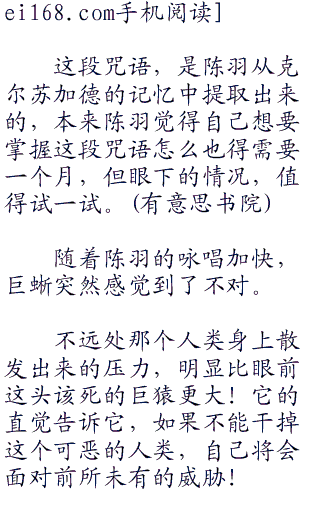 ei168.com手机阅读]
这段咒语，是陈羽从克
尔苏加德的记忆中提取出来
的，本来陈羽觉得自己想要
掌握这段咒语怎么也得需要
一个月，但眼下的情况，值
得试一试。(有意思书院)
随着陈羽的咏唱加快，
巨蜥突然感觉到了不对。
不远处那个人类身上散
发出来的压力，明显比眼前
这头该死的巨猿更大！它的
直觉告诉它，如果不能干掉
这个可恶的人类，自己将会
面对前所未有的威胁！